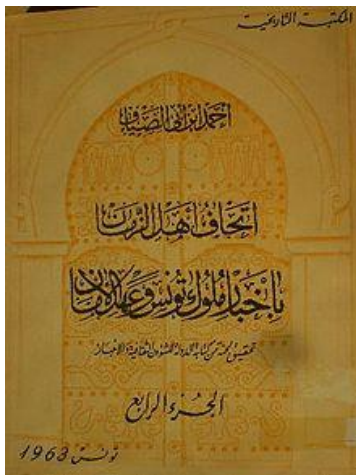 المكتبة التاريخية
أحمد ابن أبي الضياف
اتحاف أهل الزمان
بأخبار ملوك تونس وعهد الأمان
تحقيق لجنة من كتابة الدولة للشؤون الثقافية والاخبار
الجزء الرابع
تونس 1963